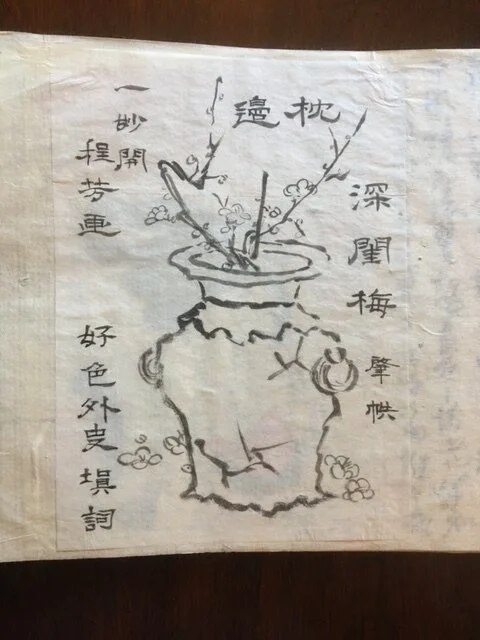 枕邊
深閨梅
肇帙
一妙開
程芳画
好色外史塡詞